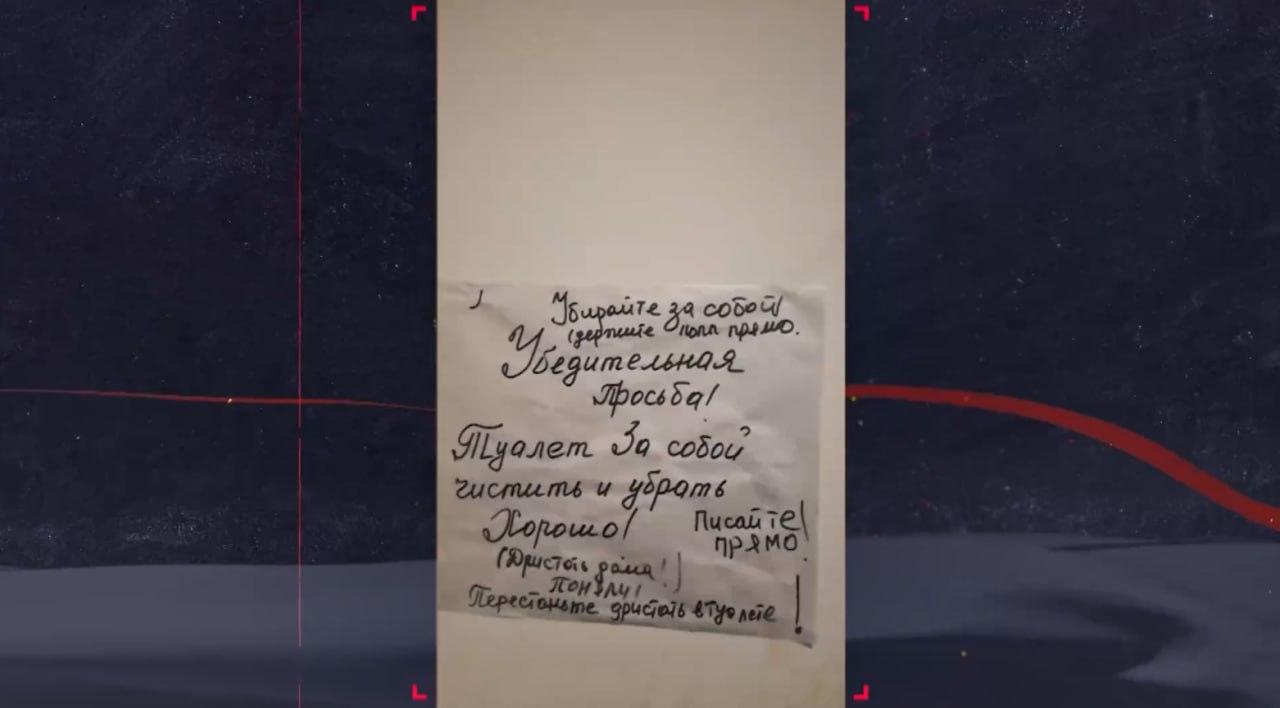 Убирайте за собой!
(держите попп прямо.
Убедительная
Просьба!
Туалет За собой
чистить и убрать
Хорошо!
Писайте!
прямо.
(Дристать дома!)
Поняли!
Перестаньте дристать в туалете!